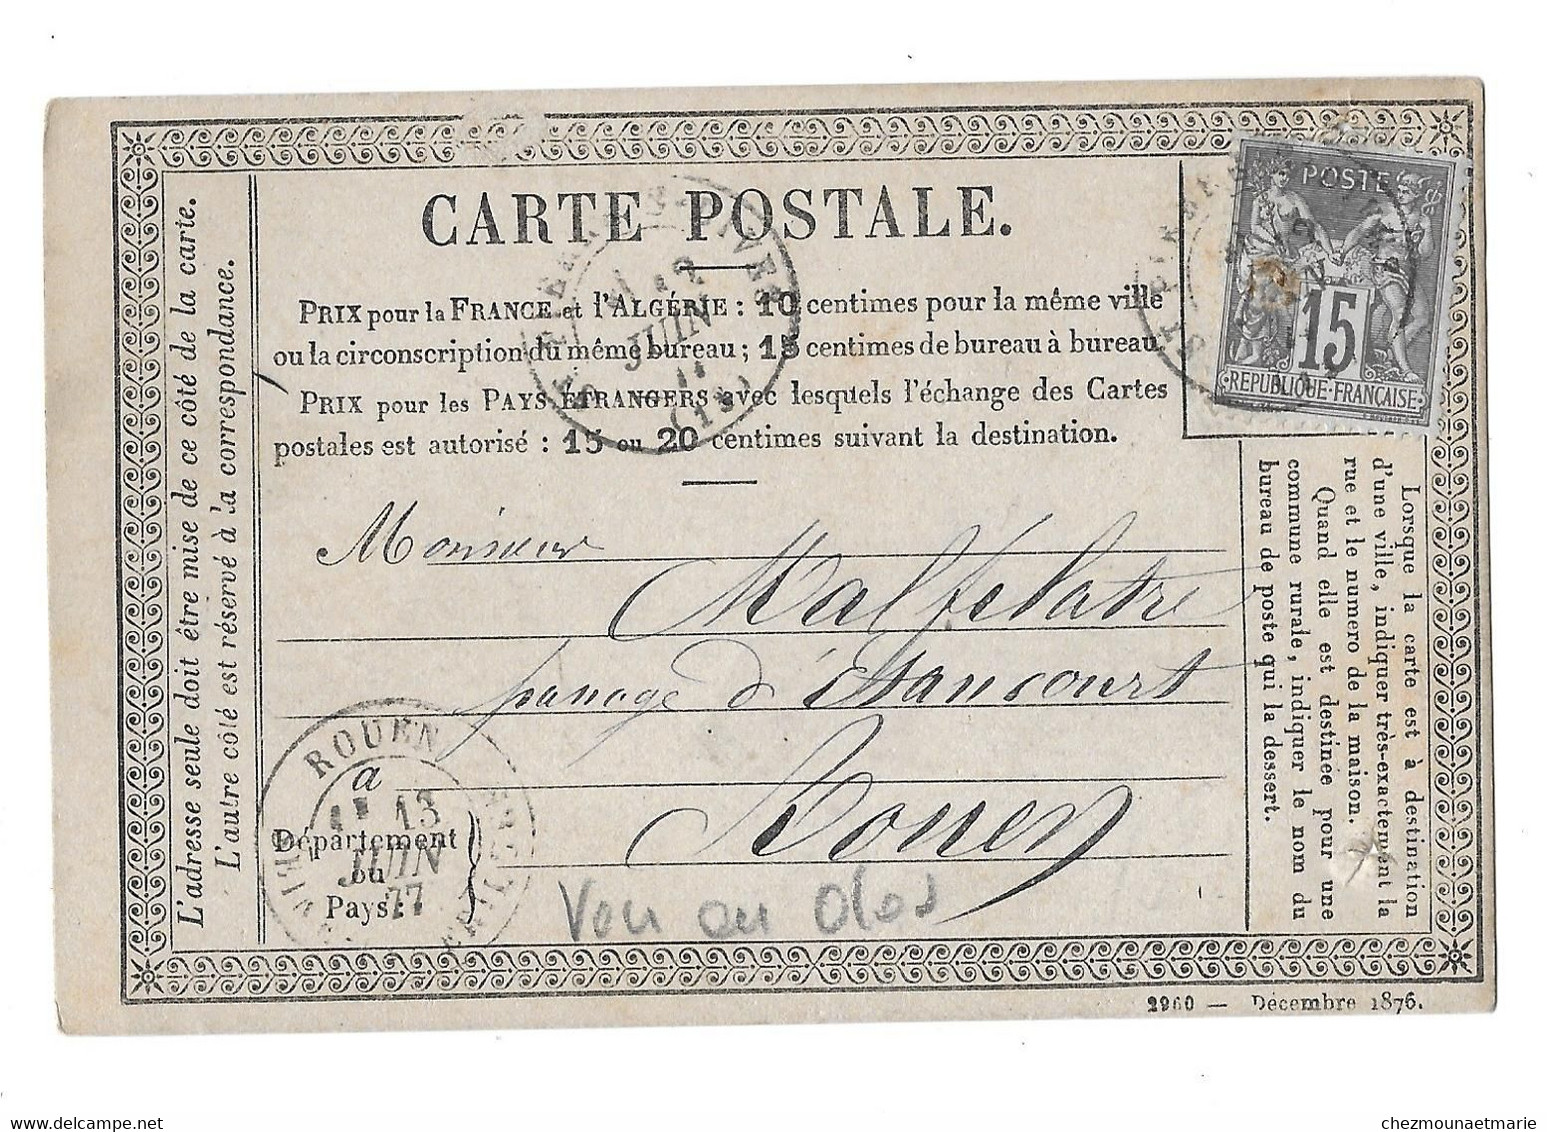 CARTE POSTALE.
PRIX pour la FRANCE et l'ALGÉRIE : 10 centimes pour la même ville
ou la circonscription du même bureau ; 15 centimes de bureau à bureau.
PRIX pour les PAYS ÉTRANGERS avec lesquels l'échange des Cartes
postales est autorisé : 15 ou 20 centimes suivant la destination.
L'adresse seule doit être mise de ce côté de la carte.
L'autre côté est réservé à la correspondance.
POSTE
15
REPUBLIQUE FRANÇAISE
JUIN
Monsieur
Malfilatre
d'étancourt
Rouen
ROUEN
13
JUIN
77
a
Département
ou
Pays.
Lorsque la carte est à destination
d'une ville, indiquer très-exactement la
rue et le numéro de la maison.
Quand elle est destinée pour une
commune rurale, indiquer le nom du
bureau de poste qui la dessert.
2960 — Décembre 1876.
chezmounaetmarie